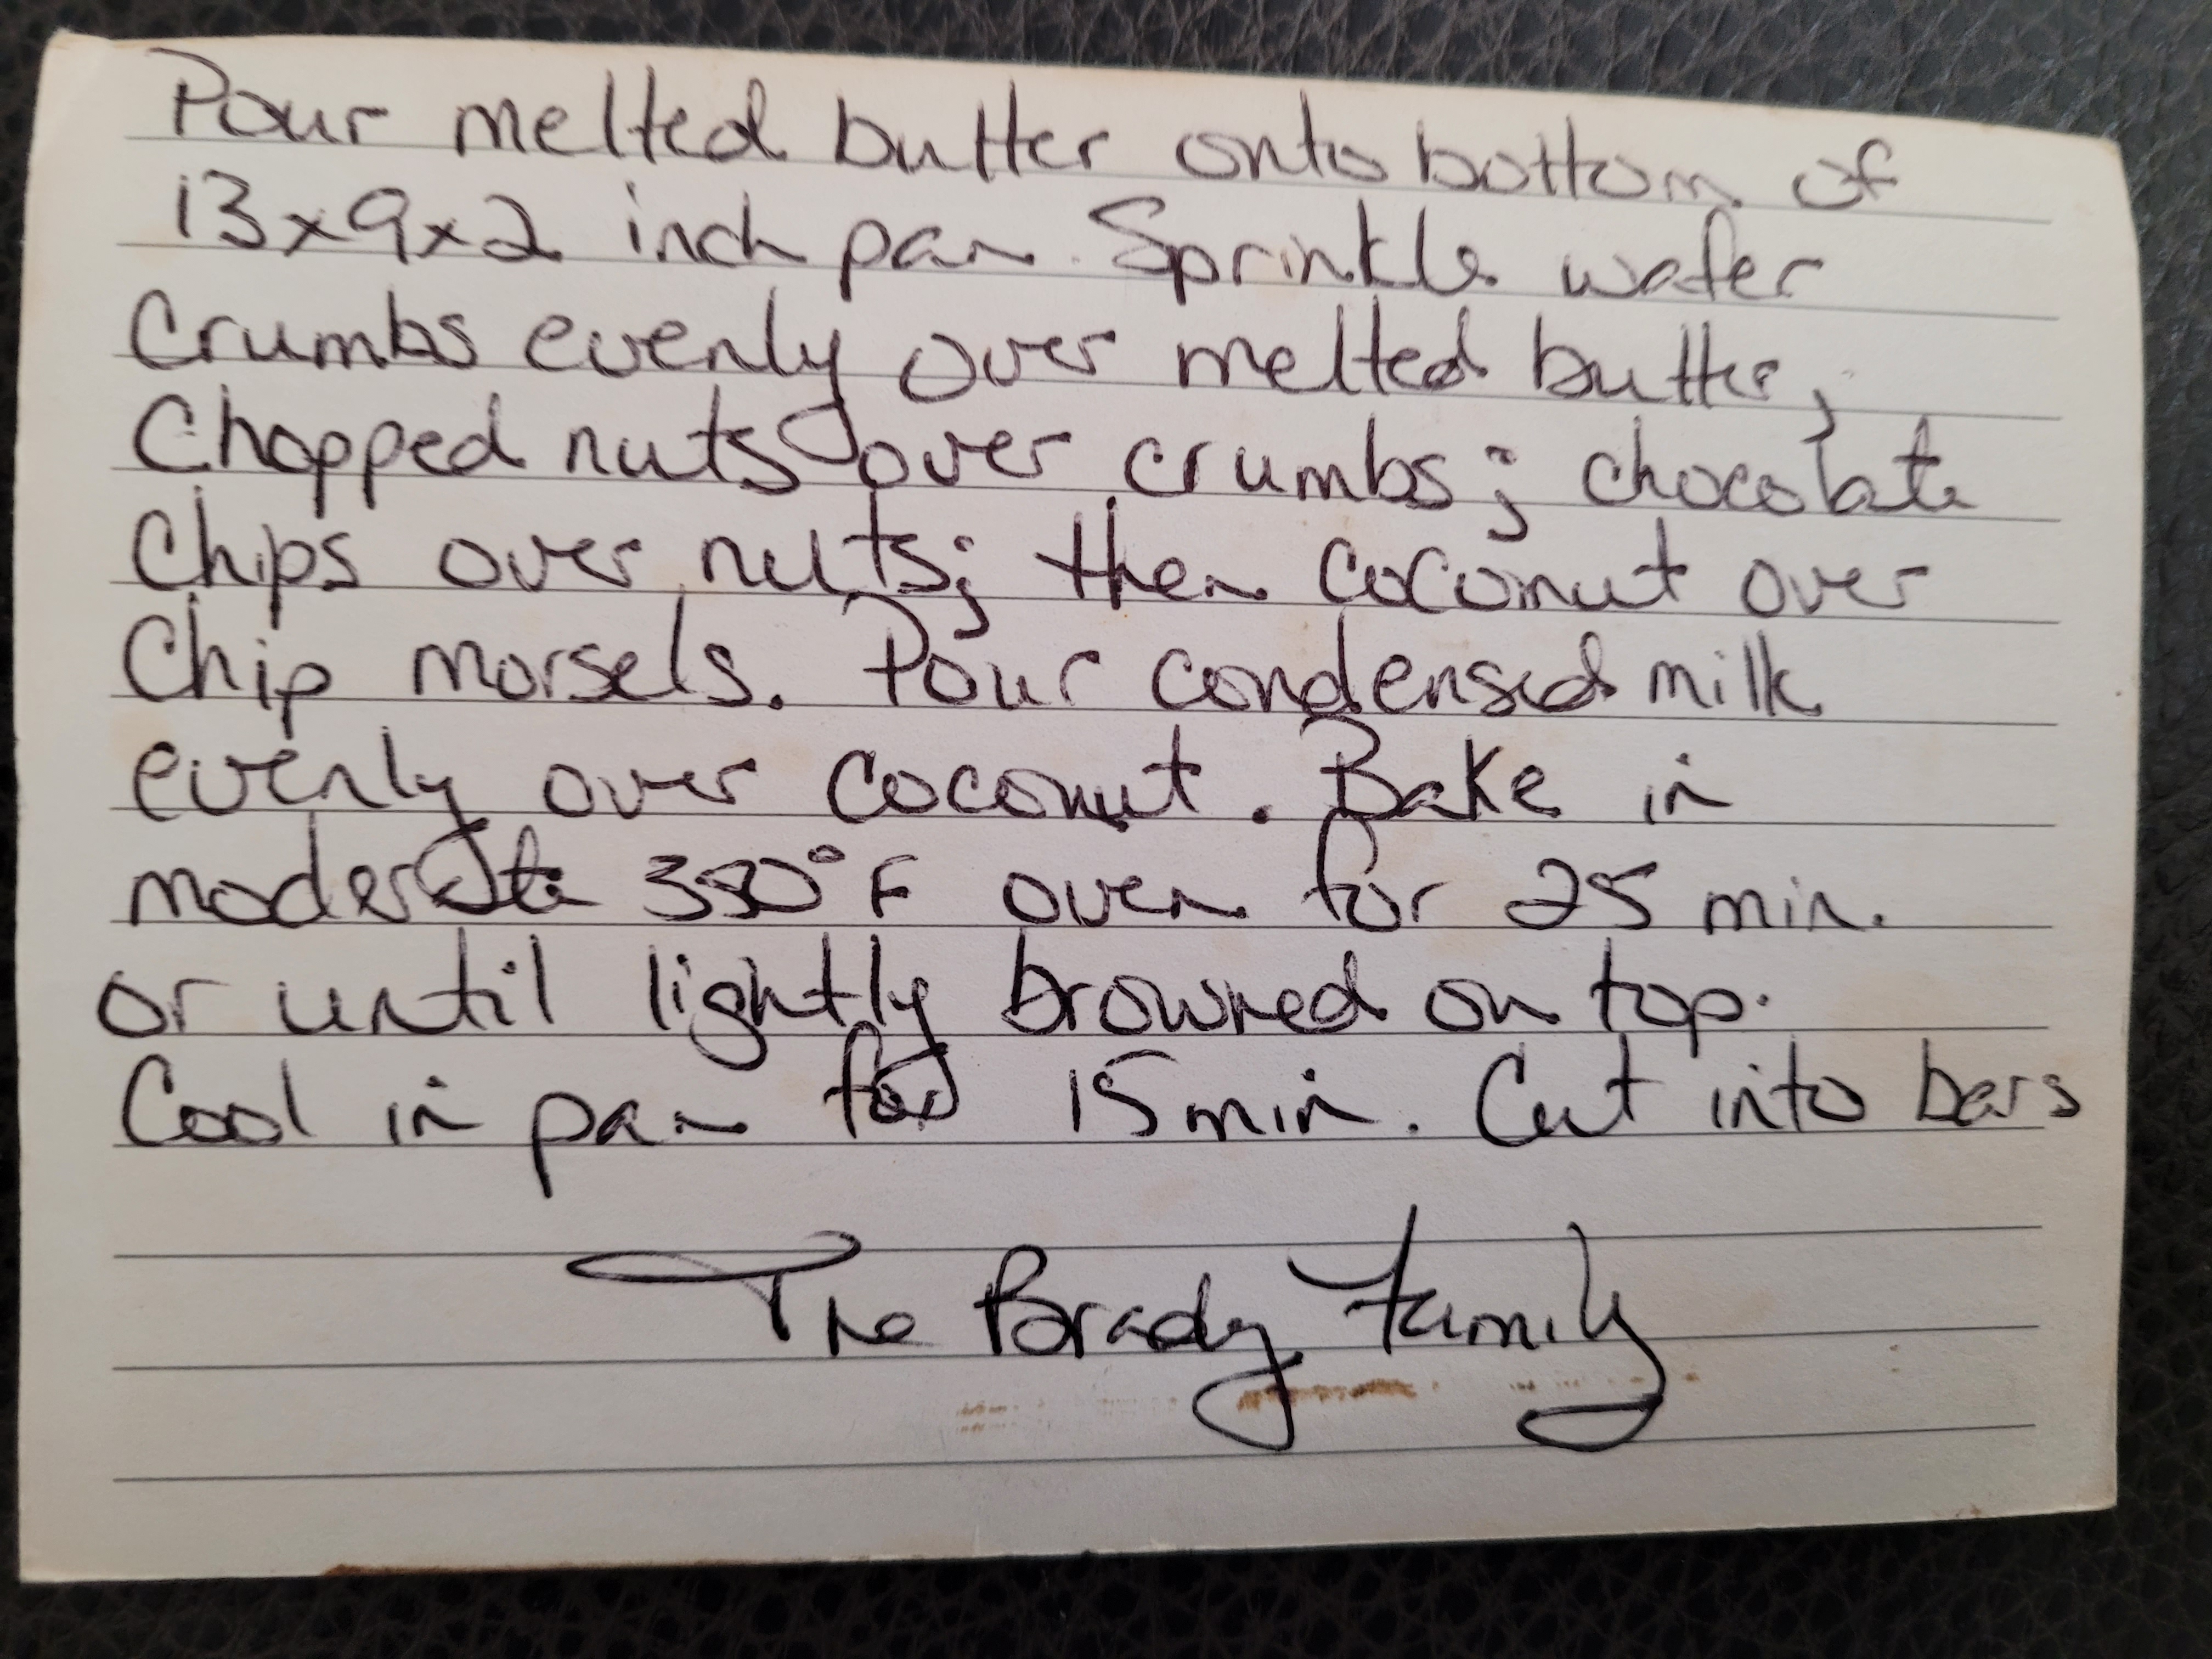 Pour melted butter onto bottom of
13x9x2 inch pan. Sprinkle wafer
Crumbs evenly over melted butter;
Chopped nuts over crumbs; chocolate
Chips over nuts; then coconut over
Chip morsels. Pour condensed milk
evenly over coconut. Bake in
moderate 350°F oven for 25 min.
or until lightly browned on top.
Cool in pan for 15 min. Cut into bars
The Brady Family